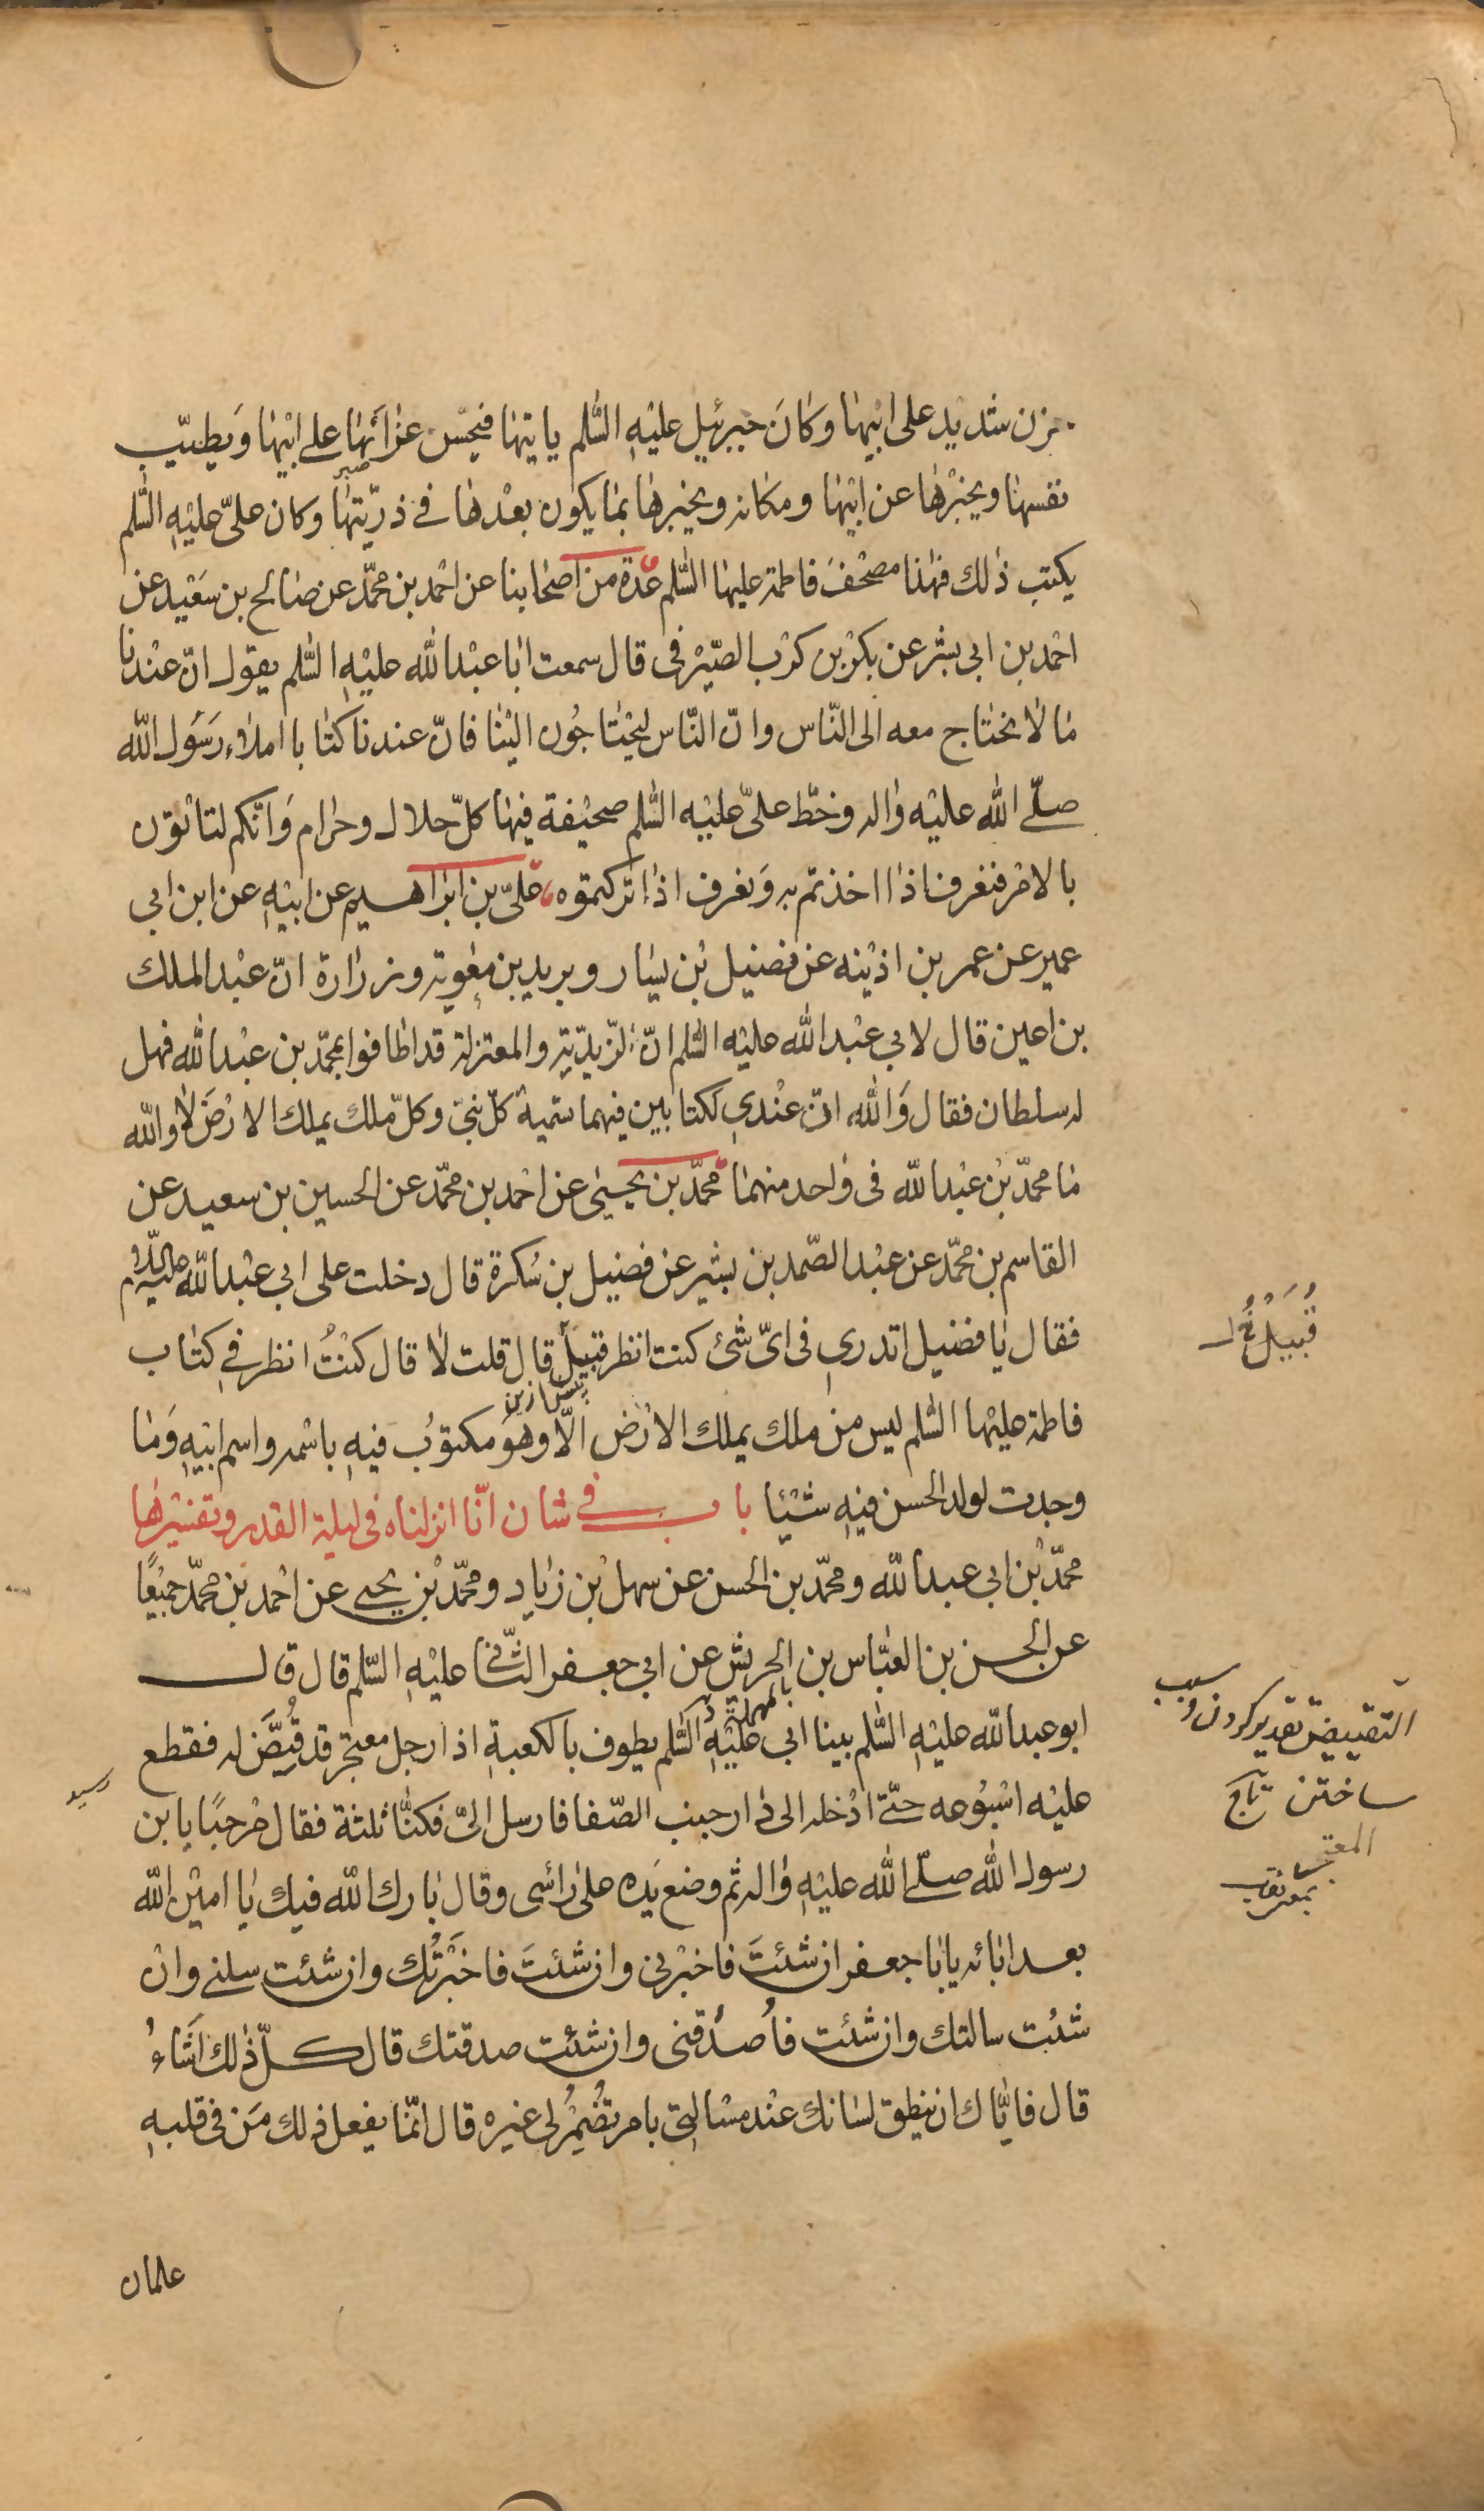 حزن شديد على ابيها وكان جبرئيل عليه السلم ياتيها فيحسن عزائها على ابيها ويطيب
نفسها ويخبرها عن ابيها ومكانه ويخبرها بما يكون بعدها فى ذريتها وكان على عليه السلم
يكتب ذلك فهذا مصحف فاطمة عليها السلم عدة من اصحابنا عن احمد بن محمد عن صالح بن سعيد عن
احمد بن ابى بشر عن بكر بن كرب الصيرفى قال سمعت ابا عبد الله عليه السلم يقول ان عندنا
ما لا نحتاج معه الى الناس وان الناس ليحتاجون الينا فان عندنا كتابا املاء رسول الله
صلى الله عليه واله وخط على عليه السلم صحيفة فيها كل حلال وحرام وانكم لتاتون
بالامر فنعرف اذا اخذتم به ونعرف اذا تركتموه على بن ابراهيم عن ابيه عن ابن ابى
عمير عن عمر بن اذينه عن فضيل بن يسار وبريد بن معوية وزرارة ان عبد الملك
بن اعين قال لابى عبد الله عليه السلم ان الزيدية والمعتزلة قد اطافوا بمحمد بن عبد الله فهل
له سلطان فقال والله ان عندى لكتابين فيهما تسمية كل نبى وكل ملك يملك الارض لا والله
ما محمد بن عبد الله فى واحد منهما محمد بن يحيى عن احمد بن محمد عن الحسين بن سعيد عن
القاسم بن محمد عن عبد الصمد بن بشير عن فضيل بن سكرة قال دخلت على ابى عبد الله عليه السلام
فقال يا فضيل اتدرى فى اى شئ كنت انظر قبيل قال قلت لا قال كنت انظر فى كتاب
قُبَيْلُ
پیش ازین
فاطمة عليها السلم ليس من ملك يملك الارض الا وهو مكتوب فيه باسمه واسم ابيه وما
وجدت لولد الحسن فيه شيئا باب فى شان انا انزلناه فى ليلة القدر وتفسيرها
محمد بن ابى عبد الله ومحمد بن الحسن عن سهل بن زياد ومحمد بن يحيى عن احمد بن محمد جميعا
عن الحسن بن العباس بن الحريش عن ابى جعفر الثانى عليه السلم قال قال
بالمهملة
ابو عبد الله عليه السلم بينا ابى عليه السلم يطوف بالكعبة اذا رجل معتجر قد قيض له فقطع
التقييض تقدير كردن وسبب
ساختن تاج
عليه اسبوعه حتى ادخله الى دار جنب الصفا فارسل الى فكنا ثلثة فقال مرحبا يا بن
رسول الله صلى الله عليه واله ثم وضع يده على راسى وقال بارك الله فيك يا امين الله
بعد ابائه يابا جعفر ان شئت فاخبرنى وان شئت فاخبرتك وان شئت سلنى وان
شئت سالتك وان شئت فاصدقنى وان شئت صدقتك قال كل ذلك اشاء
قال فاياك ان ينطق لسانك عند مسالتى بامر تضمر لى غيره قال انما يفعل ذلك من فى قلبه
علمان